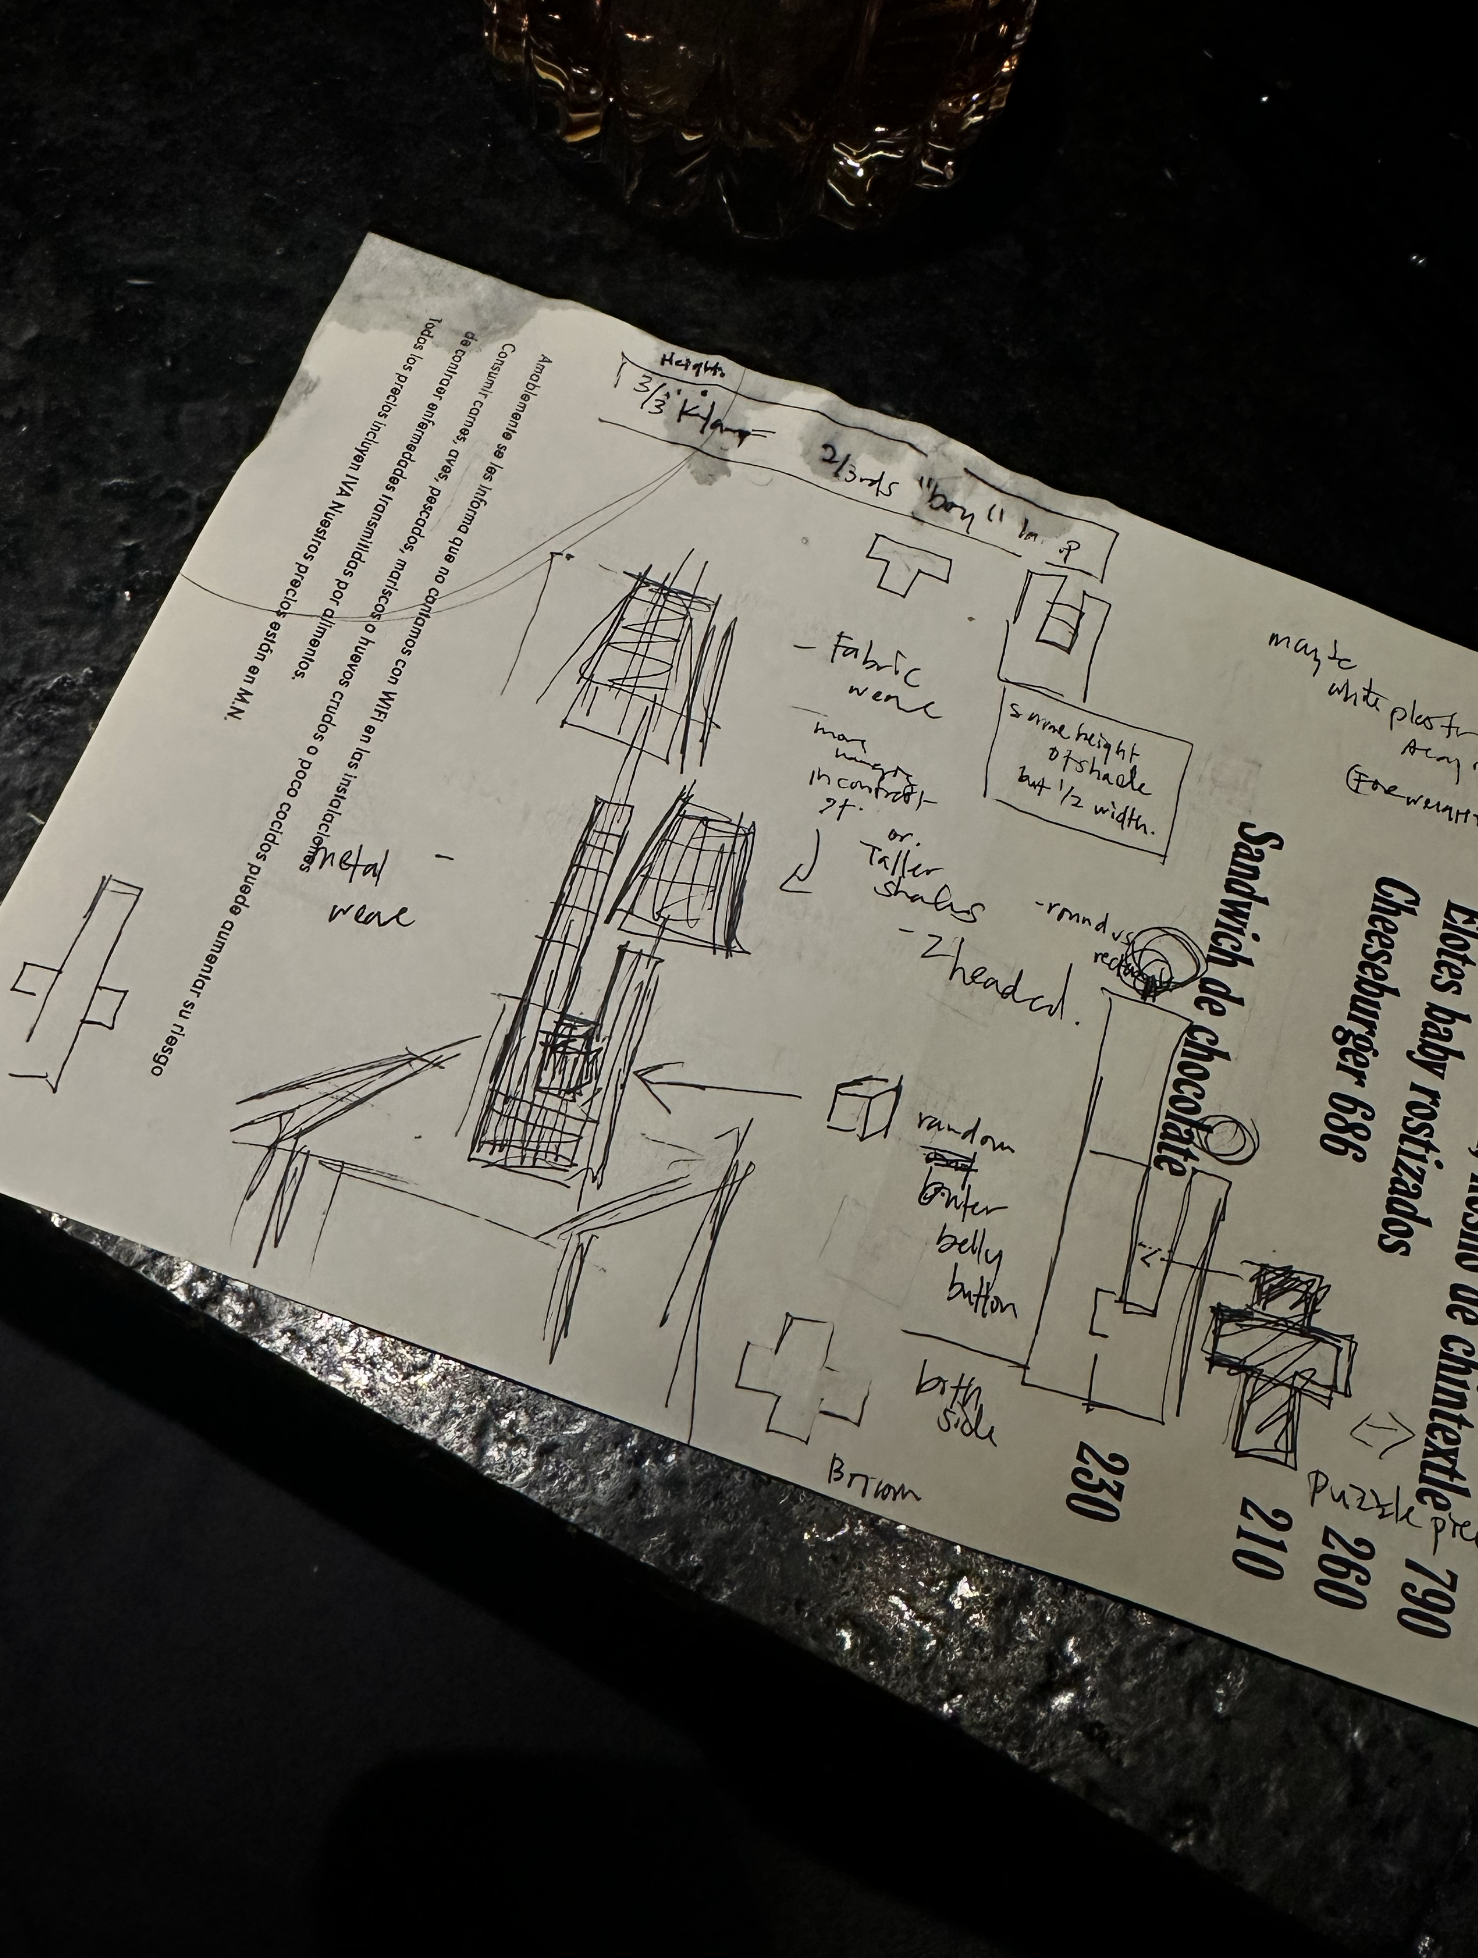 Height
3/3
2/3rds "boy"
- Fabric
weave
more
hanging
in contrast
or.
Taller
shades
- 2 headed.
same height
of shade
but 1/2 width.
maybe
white
- round vs
rectangle
metal -
weave
random
outer
belly
button
both
side
Bottom
Puzzle
Elotes baby rostizados
Cheeseburger 686
Sandwich de chocolate
de chintextle
790
260
210
230
Amablemente se les informa que no contamos con WIFI en las instalaciones
Consumir carnes, aves, pescados, mariscos o huevos crudos o poco cocidos puede aumentar su riesgo
de contraer enfermedades transmitidas por alimentos.
Todos los precios incluyen IVA Nuestros precios están en M.N.